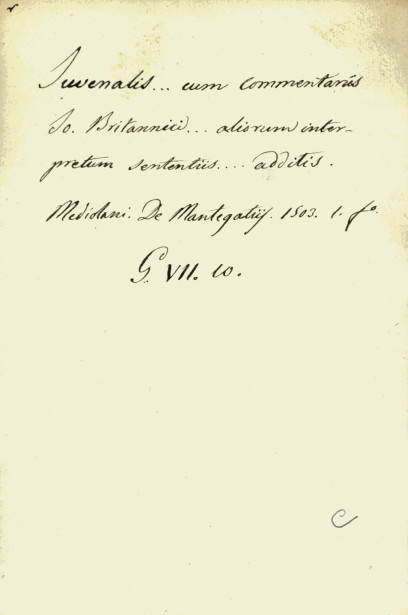 Juvenalis... cum commentariis
Jo. Britannici... aliorum inter-
pretum sententiis.... additis.
Mediolani. De Mantegatiis. 1503. 1. fo.
G. VII. 10.
C